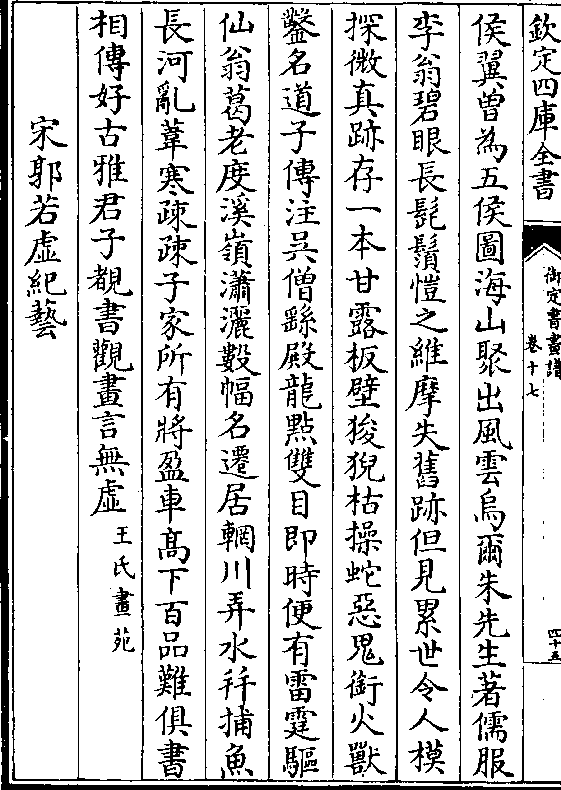 欽定四庫全書
御定書畫譜
卷十七
四十五
侯翼曾為五侯圖海山聚出風雲烏爾朱先生著儒服
李翁碧眼長髭鬚愷之維摩失舊跡但見累世令人模
探微真跡存一本甘露板壁狻猊枯操蛇惡鬼銜火獸
鑿名道子傳注吳僧繇殿龍點雙目即時便有雷霆驅
仙翁葛老度溪嶺瀟灑數幅名遷居輞川弄水秤捕魚
長河亂葦寒疎疎子家所有將盈車髙下百品難俱書
相傳好古雅君子覩書觀畫言無虛
王氏畫苑
宋郭若虛紀藝